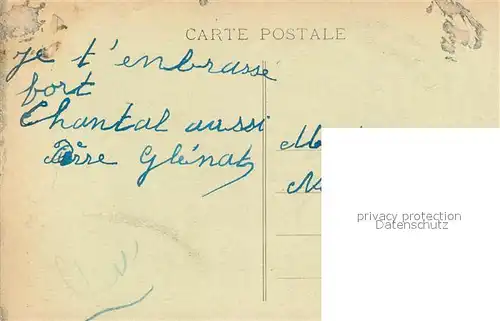 CARTE POSTALE
je t'enbrasse
fort
Chantal aussi
Pierre Glénat
privacy protection
Datenschutz